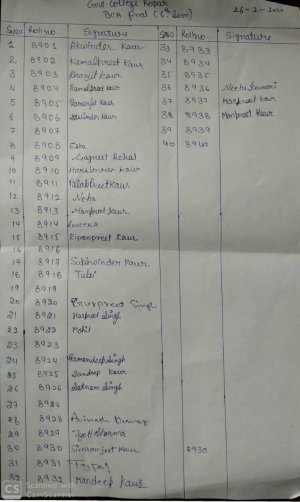 Govt. College Ropar
BCA final (6th Sem) 26-2-2020
S.No Rollno. Signature S.No Rollno. Signature
1 8901 Akwinder Kaur 33 8933
2 8902 Kamalpreet Kaur 34 8934
3 8903 Kaur 35 8935
4 8904 Kamalpreet Kaur 36 8936 Neetu Kumari
5 8905 Kaur 37 8937 Harpreet Kaur
6 8906 Kaur 38 8938 Manpreet Kaur
7 8907 39 8939
8 8908 Esha 40 8940
9 8909 Gagneet Rehal
10 8910 Harsimran Kaur
11 8911 Kaur
12 8912 Neha
13 8913 Manpreet Kaur
14 8914 Raveena
15 8915 Ripanpreet Kaur
16 8916
17 8917 Sukhwinder Kaur
18 8918
19 8919
20 8920 Gurpreet Singh
21 8921 Harpreet Singh
22 8922 Mohit
23 8923
24 8924 Ramandeep Singh
25 8925 Sandeep Kaur
26 8926 Satnam Singh
27 8927
28 8928 Avinash Kumar
29 8929 Jyoti Sharma
30 8930 Simranjeet Kaur 8930
31 8931 Tejpal
32 8932 Mandeep Kaur
CS Scanned with
CamScanner